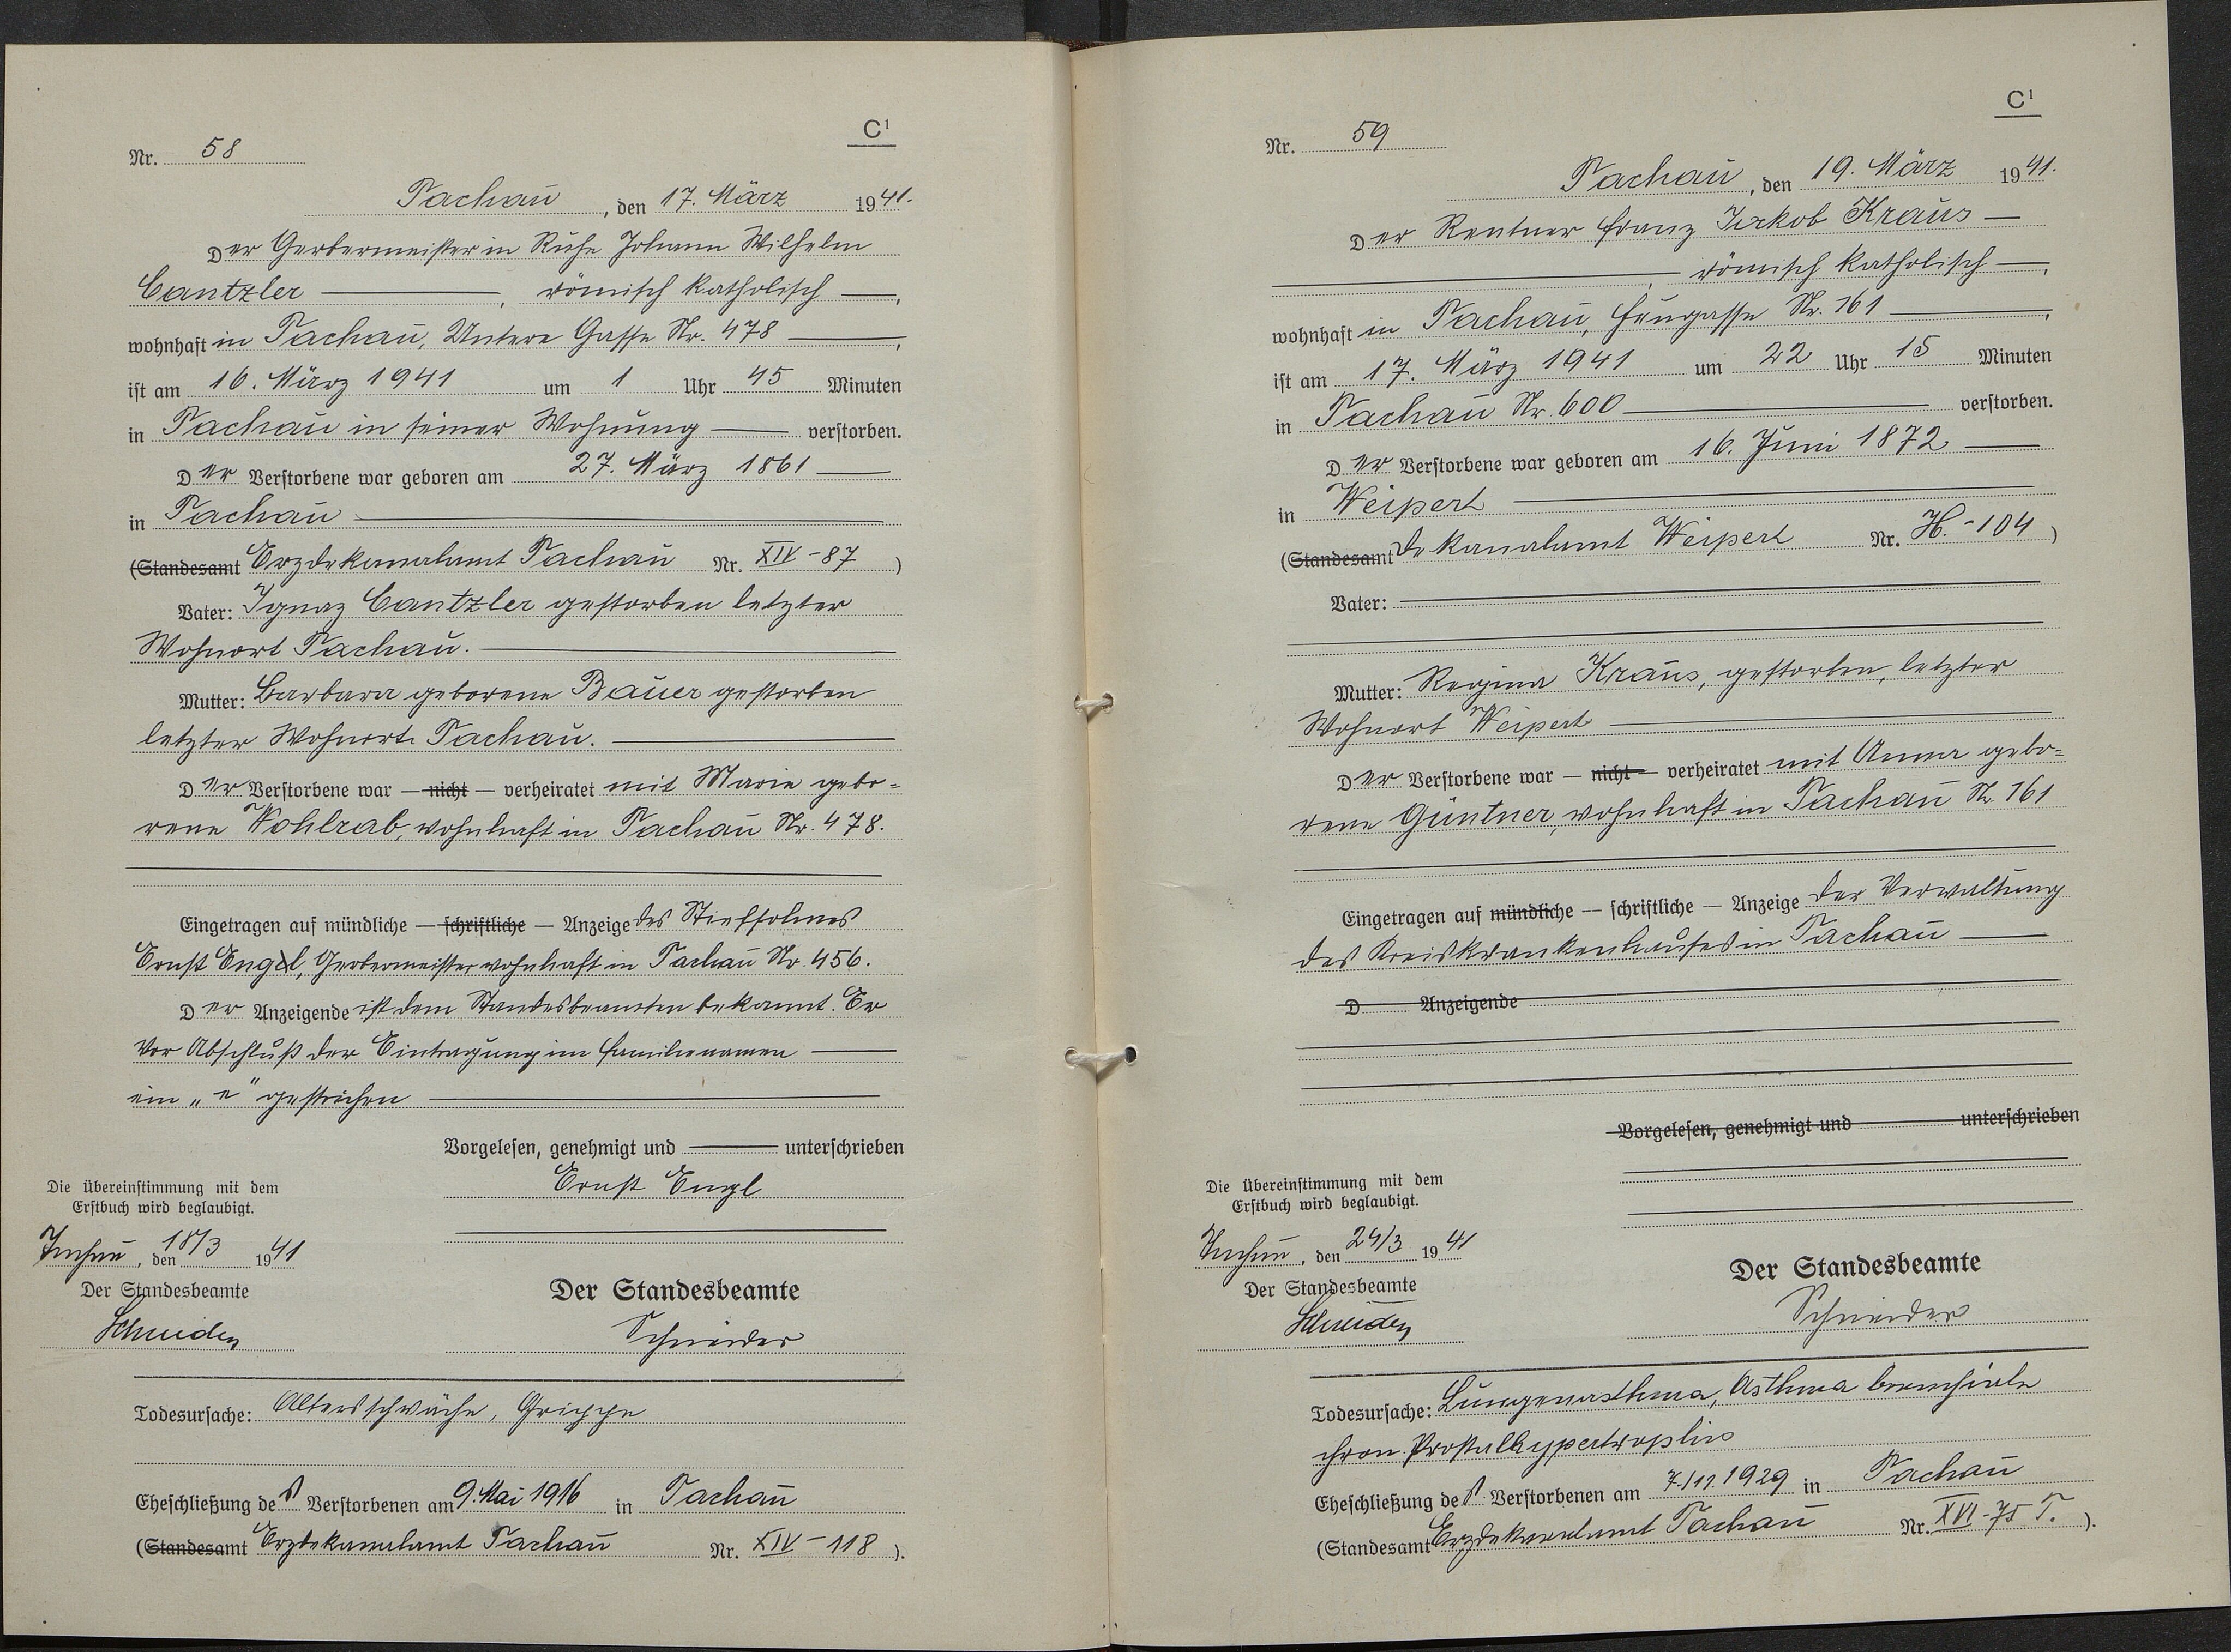 C¹
Nr. 58
Tachau, den 17. März 1941.
Der Gerbermeister in Ruhe Johann Wilhelm
Cantzler —, römisch katholisch —,
wohnhaft in Tachau, Untere Gasse Nr. 478 —,
ist am 16. März 1941 um 1 Uhr 45 Minuten
in Tachau in seiner Wohnung — verstorben.
Der Verstorbene war geboren am 27. März 1861 —
in Tachau —
(Standesamt Erzdekanalamt Tachau Nr. XIV-87)
Vater: Ignaz Cantzler gestorben letzter
Wohnort Tachau. —
Mutter: Barbara geborene Bauer gestorben
letzter Wohnort Tachau. —
Der Verstorbene war — nicht — verheiratet mit Marie gebo=
rene Wohlrab, wohnhaft in Tachau Nr. 478.
Eingetragen auf mündliche — schriftliche — Anzeige des Stiefsohnes
Ernst Engel, Gerbermeister wohnhaft in Tachau Nr. 456.
Der Anzeigende ist dem Standesbeamten bekannt. Er
Vor Abschluß der Eintragung im Familiennamen —
ein „e" gestrichen —
Vorgelesen, genehmigt und — unterschrieben
Ernst Engl
Die Übereinstimmung mit dem
Erstbuch wird beglaubigt.
Tachau, den 18/3 1941
Der Standesbeamte
Schneider
Der Standesbeamte
Schneider
Todesursache: Altersschwäche, Grippe
Eheschließung des Verstorbenen am 9. Mai 1916 in Tachau
(Standesamt Erzdekanalamt Tachau Nr. XIV-118).
C¹
Nr. 59
Tachau, den 19. März 1941.
Der Rentner Franz Jakob Kraus —
—, römisch katholisch —,
wohnhaft in Tachau, Nr. 161 —,
ist am 17. März 1941 um 22 Uhr 15 Minuten
in Tachau Nr. 600 — verstorben.
Der Verstorbene war geboren am 16. Juni 1872 —
in Weipert —
(Standesamt Dekanalamt Weipert Nr. H.-104)
Vater: —
Mutter: Regina Kraus, gestorben, letzter
Wohnort Weipert —
Der Verstorbene war — nicht — verheiratet mit Anna gebo=
rene Güntner, wohnhaft in Tachau Nr. 161
Eingetragen auf mündliche — schriftliche — Anzeige der Verwaltung
des Kreiskrankenhauses in Tachau —
D Anzeigende
Vorgelesen, genehmigt und unterschrieben
Die Übereinstimmung mit dem
Erstbuch wird beglaubigt.
Tachau, den 24/3 1941
Der Standesbeamte
Schneider
Der Standesbeamte
Schneider
Todesursache: Lungenasthma, Asthma bronchiale
chron.
Eheschließung des Verstorbenen am 7./11. 1929 in Tachau
(Standesamt Erzdekanalamt Tachau Nr. XVI-75 T.).